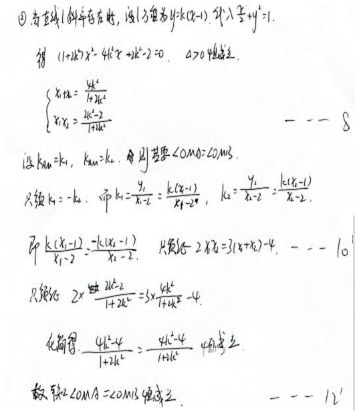 ① 当直线l斜率存在时, 设l方程为y=k(x-1). 代入 x²/2+y²=1.
得 (1+2k²)x²-4k²x+2k²-2=0. Δ>0恒成立.
{ x₁+x₂=4k²/(1+2k²)
x₁x₂=(2k²-2)/(1+2k²) --- 8
设k_AM=k₁, k_BM=k₂. 要∠OMA=∠OMB.
只须k₁=-k₂. 而k₁=y₁/(x₁-2)=k(x₁-1)/(x₁-2), k₂=y₂/(x₂-2)=k(x₂-1)/(x₂-2).
即 k(x₁-1)/(x₁-2)=-k(x₂-1)/(x₂-2). 只须证 2x₁x₂=3(x₁+x₂)-4. --- 10'
只须证 2×(2k²-2)/(1+2k²)=3×4k²/(1+2k²)-4
化简得: (4k²-4)/(1+2k²)=(4k²-4)/(1+2k²) 恒成立
故 ∠OMA=∠OMB恒成立. --- 12'